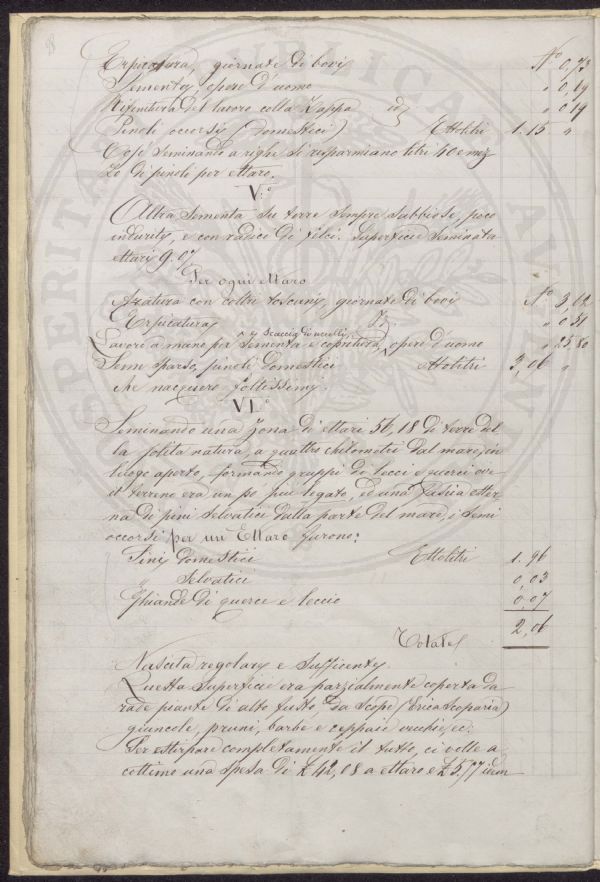 Erpicatura, giornate di bovi N° 0,73
Sementa, opere d'uomo " 0,19
Rifinitura del lavoro colla Zappa id " 0,19
Pinoli occorsi (domestici) Ettolitri 1.15 "
Così seminando a righe si risparmiano litri 40 e mez
zo di pinoli per ettaro.
V.°
Altra sementa su terre sempre sabbiose, poco
indurite, e con radici di felci. Superficie seminata
ettari 9.07
Per ogni ettaro
Aratura con coltri toscani, giornate di bovi N° 3,02
Erpicatura " 0,51
e scaccia di uccelli
Lavori a mano per sementa e copritura, opere d'uomo " 25,80
Seme sparso, pinoli domestici Ettolitri 3,06 "
che nacquero foltissimi.
VI.°
Seminando una Zona di ettari 56,18 di terre del
la solita natura, a quattro chilometri dal mare, in
luogo aperto, formando gruppi di lecci e querci ove
il terreno era un po più legato, ed una fascia ester
na di pini selvatici dalla parte del mare, i semi
occorsi per un Ettaro furono:
Pini domestici Ettolitri 1.96
" Selvatici 0,03
Ghiande di querce e leccio 0,07
Totale 2,06
Nascita regolare e sufficente.
Questa superficie era parzialmente coperta da
rade piante di alto fusto, da Scope (Erica Scoparia)
giuncole, pruni, barbe e ceppaie vecchie, ec.
Per estirpare completamente il tutto, ci volle a
cottimo una spesa di £ 42,08 a ettaro e £ 5,77 idem